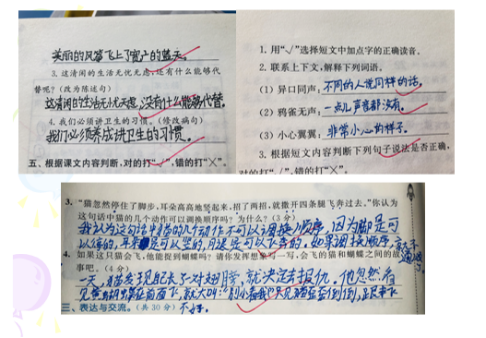 美丽的风筝飞上了宽广的蓝天。
3. 这清闲的生活无忧无虑,还有什么能够代
替呢?(改为陈述句)
这清闲的生活无忧无虑,没有什么能够代替。
4. 我们必须讲卫生的习惯。(修改病句)
我们必须养成讲卫生的习惯。
五、根据课文内容判断,对的打“√”,错的打“×”。
1. 用“√”选择短文中加点字的正确读音。
2. 联系上下文,解释下列词语。
(1) 异口同声:不同的人说同样的话。
(2) 鸦雀无声:一点儿声音都没有。
(3) 小心翼翼:非常小心的样子。
3. 根据短文内容判断下列句子说法是否正确,
对的打“√”,错的打“×”。
3. “猫忽然停住了脚步,耳朵高高地竖起来,招了两招,就撒开四条腿飞奔过去。”你认为
这句话中猫的几个动作可以调换顺序吗?为什么?(3分)
我认为这句话中猫的几个动作不可以调换顺序,因为脚是可
以停的,耳朵是可以竖的,
如果调换顺序,
4. 如果这只猫会飞,他能捉到蝴蝶吗?请你发挥想象写一写,会飞的猫和蝴蝶之间的故
事吧。(4分)
一天,猫发现自己长了一对翅膀,就决定去报仇。他忽然看
见
三、表达与交流。(共30分)